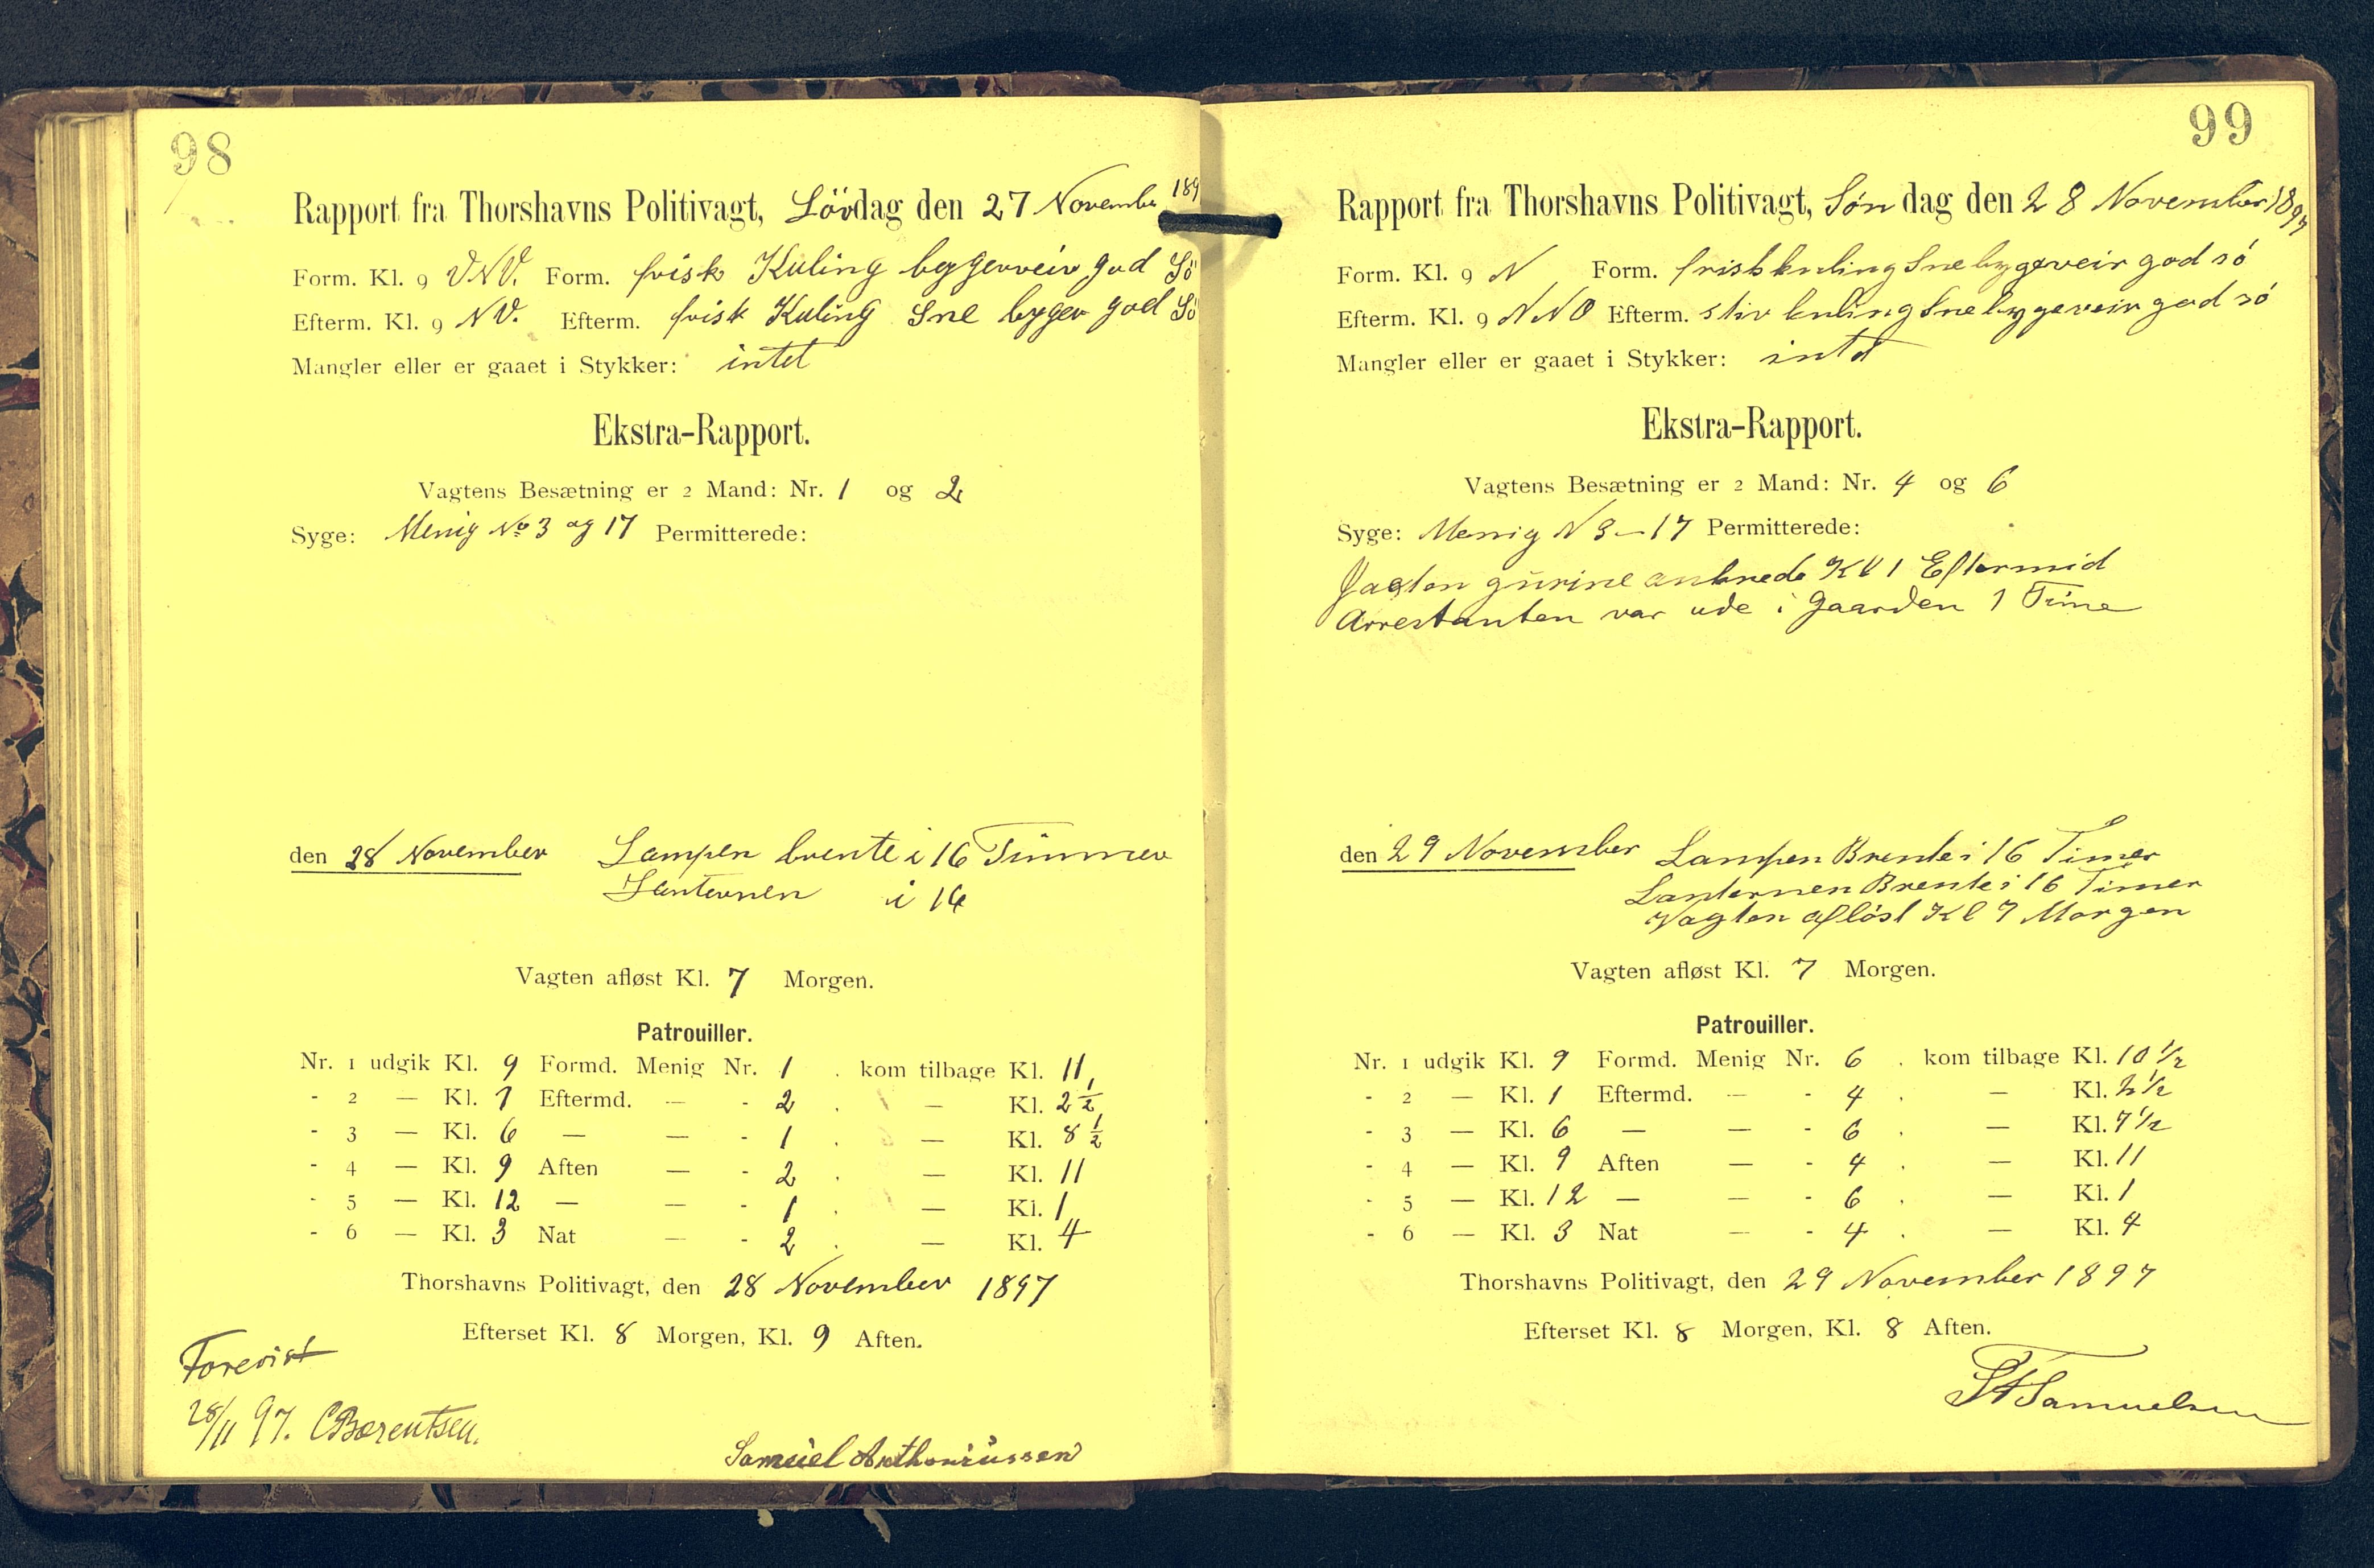 98
Rapport fra Thorshavns Politivagt, Lövdag den 27 November 189
Form. Kl. 9 VNV. Form. frisk Kuling bygerveir god Sö
Efterm. Kl. 9 NV. Efterm. frisk Kuling Sne byger god Sö
Mangler eller er gaaet i Stykker: intet
Ekstra-Rapport.
Vagtens Besætning er 2 Mand: Nr. 1 og 2
Syge: Menig No 3 og 17 Permitterede:
den 28 November Lampen brente i 16 Timmer
Lanternen i 16
Vagten afløst Kl. 7 Morgen.
Patrouiller.
Nr. 1 udgik Kl. 9 Formd. Menig Nr. 1 . kom tilbage Kl. 11
- 2 — Kl. 1 Eftermd. — - 2 . — Kl. 2 1/2
- 3 — Kl. 6 — — - 1 . — Kl. 8 1/2
- 4 — Kl. 9 Aften — - 2 . — Kl. 11
- 5 — Kl. 12 — — - 1 . — Kl. 1
- 6 — Kl. 3 Nat — - 2 . — Kl. 4
Thorshavns Politivagt, den 28 November 1897
Efterset Kl. 8 Morgen, Kl. 9 Aften.
Forevist
28/11 97. CBærentsen.
Samuel Anthoniussen
99
Rapport fra Thorshavns Politivagt, Søndag den 28 November 1897
Form. Kl. 9 N Form. frisk kuling Snebygeveir god só
Efterm. Kl. 9 NNO Efterm. stiv kuling Snebygeveir god só
Mangler eller er gaaet i Stykker: intet
Ekstra-Rapport.
Vagtens Besætning er 2 Mand: Nr. 4 og 6
Syge: Menig N 3 – 17 Permitterede:
Kl 1 Eftermid
Arrestanten var ude i Gaarden 1 Time
den 29 November Lampen Brente i 16 Timer
Lanternen Brente i 16 Timer
Vagten aflöst Kl 7 Morgen
Vagten afløst Kl. 7 Morgen.
Patrouiller.
Nr. 1 udgik Kl. 9 Formd. Menig Nr. 6 . kom tilbage Kl. 10 1/2
- 2 — Kl. 1 Eftermd. — - 4 . — Kl. 2 1/2
- 3 — Kl. 6 — — - 6 . — Kl. 7 1/2
- 4 — Kl. 9 Aften — - 4 . — Kl. 11
- 5 — Kl. 12 — — - 6 . — Kl. 1
- 6 — Kl. 3 Nat — - 4 . — Kl. 4
Thorshavns Politivagt, den 29 November 1897
Efterset Kl. 8 Morgen, Kl. 8 Aften.
Samuelsen